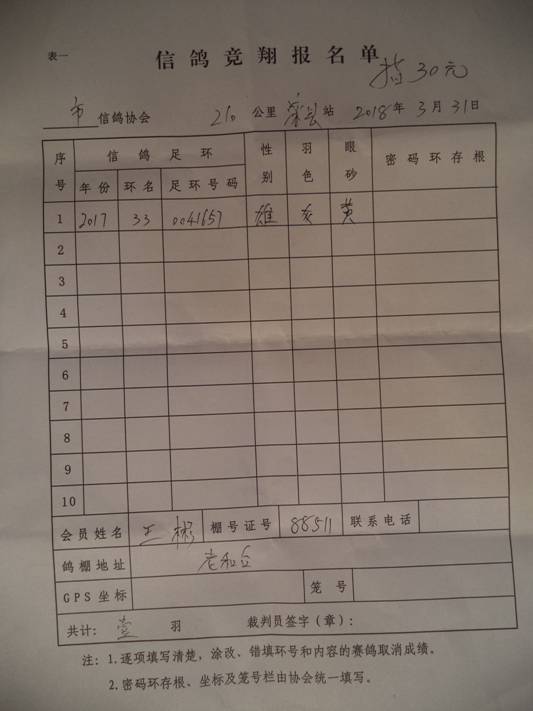 表一
信鸽竞翔报名单
指30元
市 信鸽协会 210 公里 荣县 站 2018年3月31日
序号 信鸽足环 性别 羽色 眼砂 密码环存根
年份 环名 足环号码
1 2017 33 0041657 雄 灰 黄
2
3
4
5
6
7
8
9
10
会员姓名 王彬 棚号证号 88511 联系电话
鸽棚地址
GPS坐标 笼号
共计： 壹 羽 裁判员签字（章）：
注：1.逐项填写清楚，涂改、错填环号和内容的赛鸽取消成绩。
2.密码环存根、坐标及笼号栏由协会统一填写。